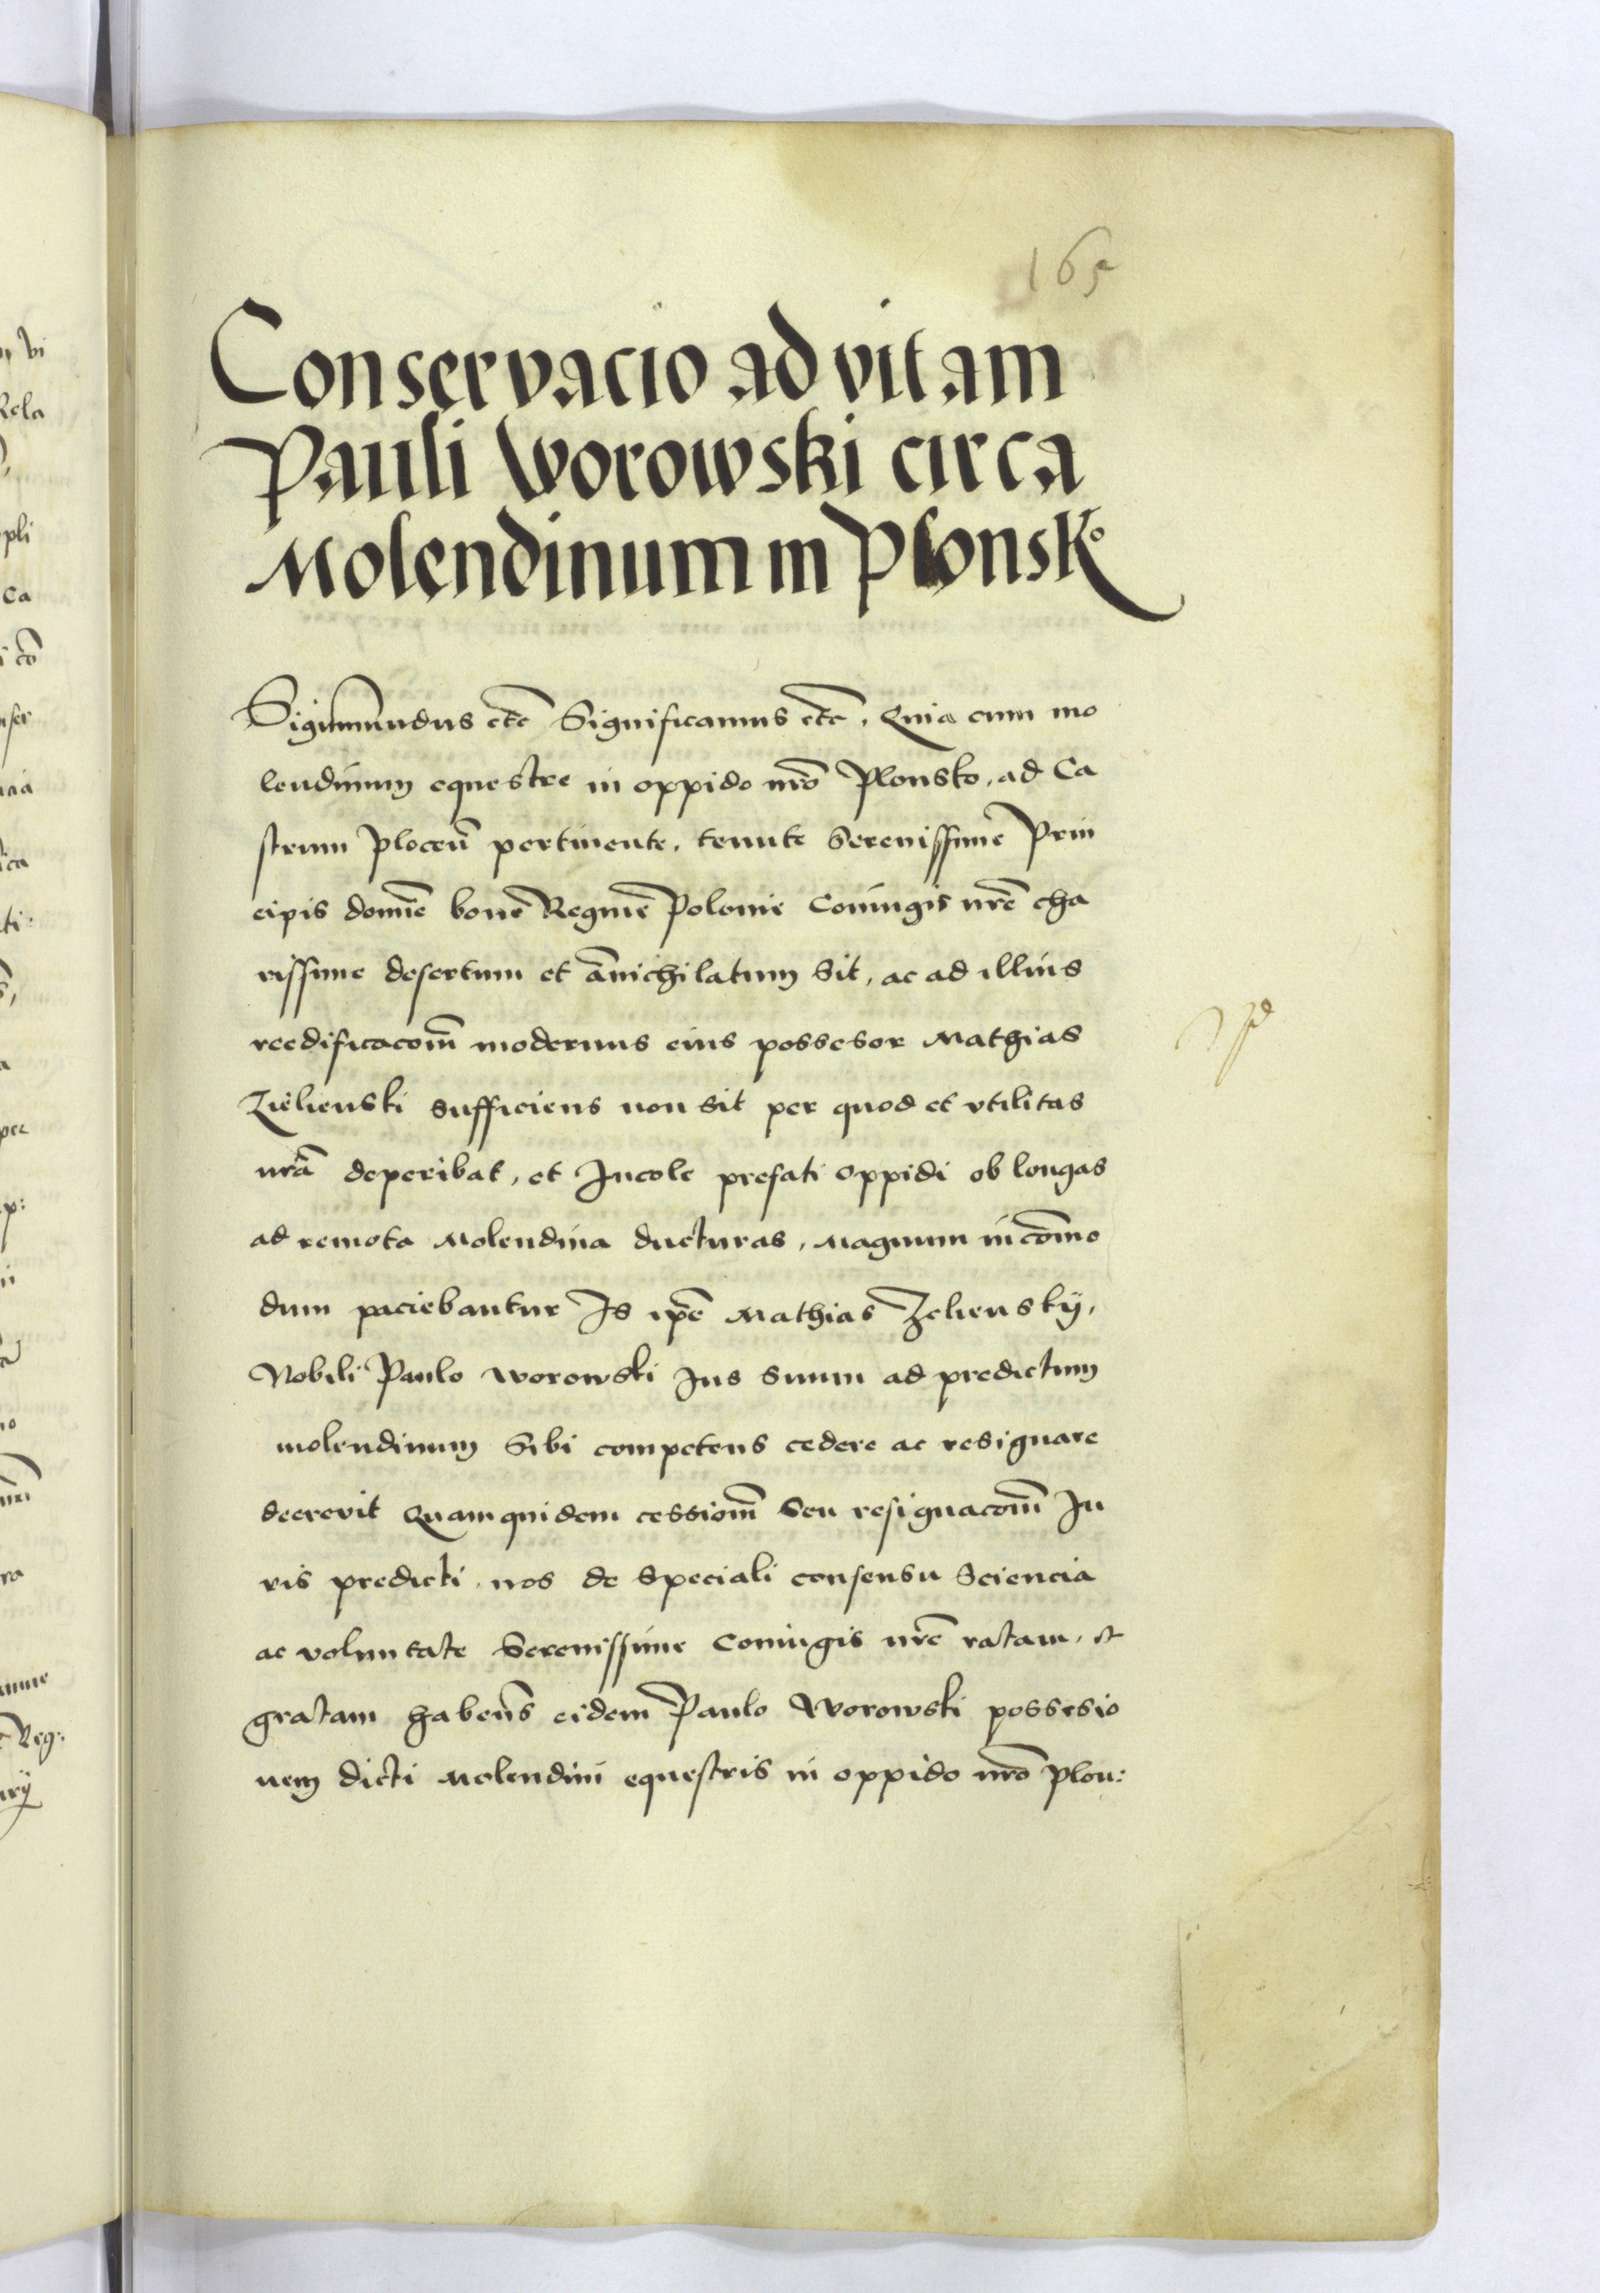 165
Conservacio ad vitam
Pauli Worowski circa
Molendinum in Plonsko
Sigismundus etc̄ Significamus etc̄, Quia cum mo
lendinum equestre in oppido nr̄o Plonsko, ad Ca
strum plocen̄ pertinente, tenute Serenissime Prin
cipis domīe bone Regine Polonie Coniugis nr̄e cha
rissime desertum et an̄ichilatum sit, ac ad illius
reedificacom̄ modernus eius possesor Mathias
Zielienski sufficiens non sit per quod et vtilitas
nr̄a deperibat, et Incole prefati oppidi ob longas
ad remota Molendina ducturas, Magnum incōmo
dum paciebantur Is ip̄e Mathias Zelienskÿ,
Nobili Paulo worowski Jus suum ad predictum
molendinum sibi competens cedere ac resignare
decrevit Quamquidem cessiom̄ seu resignacom̄ Ju
ris predicti, nos de speciali consensu sciencia
ac voluntate Serenissime Coniugis nr̄e ratam, et
gratam haben̄s eidem Paulo Worowski possesio
nem dicti Molendini equestris in oppido nr̄o plon: